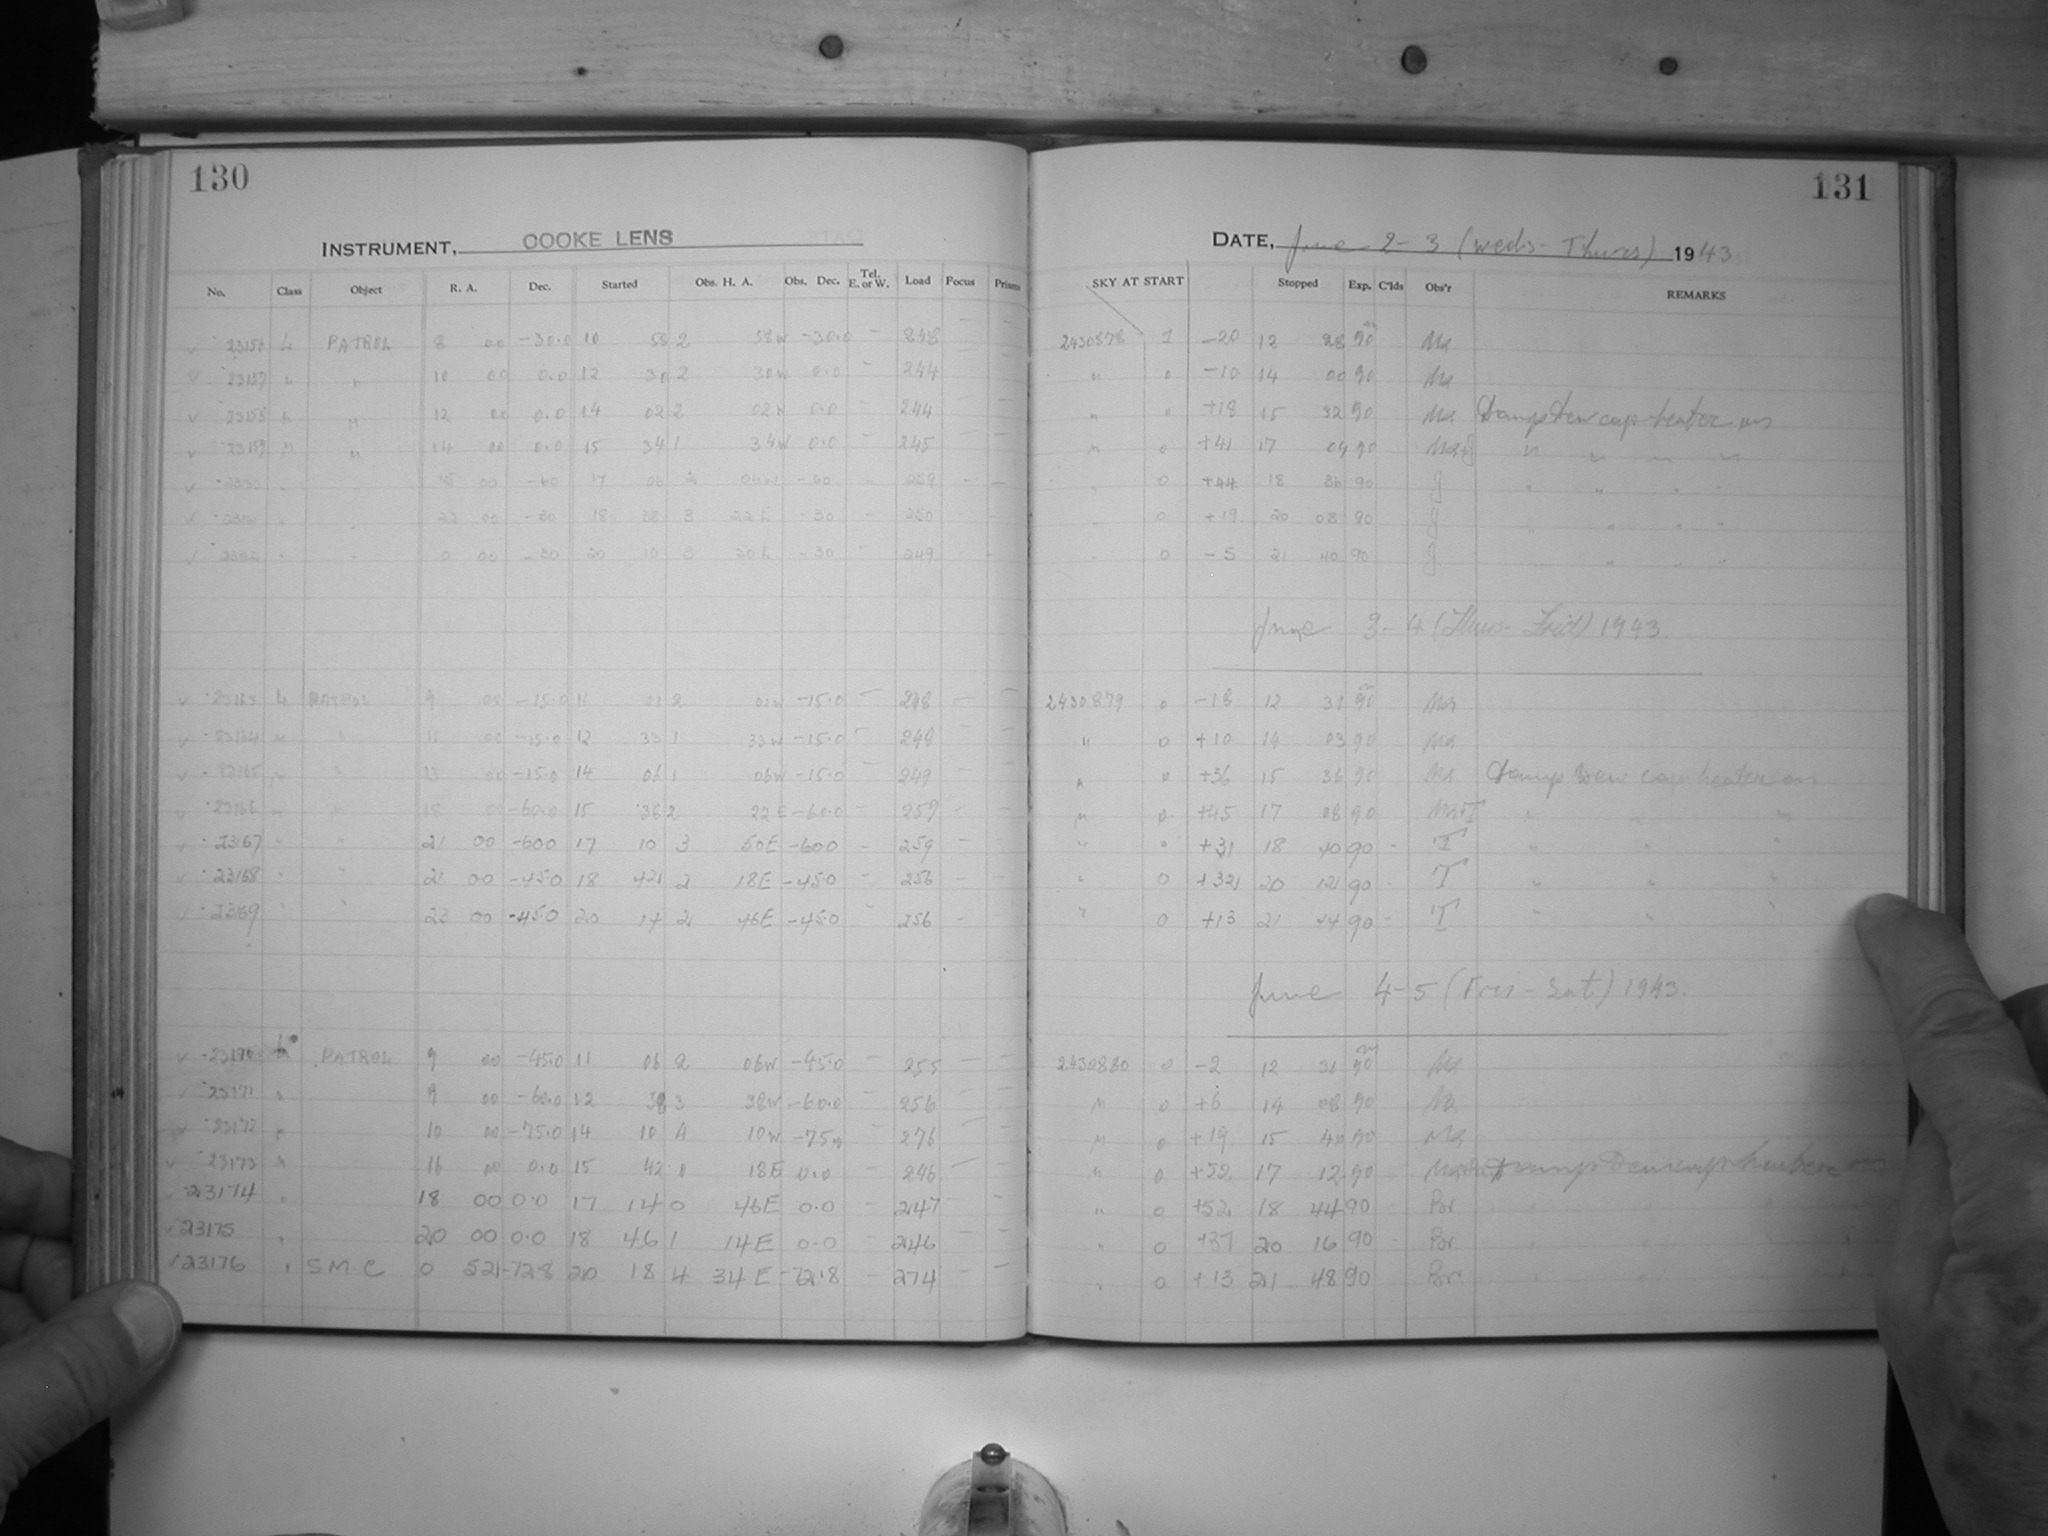 130
INSTRUMENT, COOKE LENS
No. Class Object R. A. Dec. Started Obs. H. A. Obs. Dec. Tel. E. or W. Load Focus Prisms
23156 L PATROL 8 00 -30.0 10 58 2 58W -30.0 - 248 - -
23157 " " 10 00 0.0 12 30 2 30W 0.0 - 244 - -
23158 " " 12 00 0.0 14 02 2 02W 0.0 - 244
23159 " " 14 00 0.0 15 34 1 34W 0.0 - 245
15 00 -60 17 06 06W -60 - 259 - -
22 00 -30 18 38 3 22E -30 - 250 - -
0 00 -30 20 10 3 50E -30 - 249 - -
23163 L PATROL 9 00 -15.0 11 01 2 01W -15.0 - 248 - -
23164 " " 11 00 -15.0 12 33 1 33W -15.0 - 248 - -
23165 " " 13 00 -15.0 14 06 1 06W -15.0 - 249 - -
23166 " " 18 00 -60.0 15 36 2 22E -60.0 - 259 - -
23167 " " 21 00 -60.0 17 10 3 50E -60.0 - 259 - -
23168 " " 21 00 -45.0 18 42 2 18E -45.0 - 256 - -
23169 " " 23 00 -45.0 20 14 2 46E -45.0 - 256 - -
23170 L PATROL 9 00 -45.0 11 06 2 06W -45.0 - 255 - -
23171 " 9 00 -60.0 12 38 3 38W -60.0 - 256 - -
23172 " 10 00 -75.0 14 10 4 10W -75.0 - 276 - -
23173 " 16 00 0.0 15 42 0 18E 0.0 - 246 - -
23174 " 18 00 0.0 17 14 0 46E 0.0 - 247 - -
23175 " 20 00 0.0 18 46 1 14E 0.0 - 246 - -
23176 " SMC 0 52 -72.8 20 18 4 34E -72.8 - 274 - -
131
DATE, June 2-3 (Weds-Thurs) 1943
SKY AT START Stopped Exp. C'lds Obs'r REMARKS
2430878 1 -20 12 28 90 Ma
" 0 -10 14 00 90 Ma
" 0 +18 15 32 90 Ma Damp Dew cap heater on
" 0 +41 17 04 90 " " " "
" 0 +44 18 36 90 J " " " "
" 0 +19 20 08 90 J " " " "
" 0 -5 21 40 90 J " " " "
June 3-4 (Thurs-Frid) 1943.
2430879 0 -18 12 31 90 Ma
" 0 +10 14 03 90 Ma
" 0 +36 15 36 90 Ma Damp Dew cap heater on
" 0 +45 17 08 90 Ma+T " " "
" 0 +31 18 40 90 - T " " "
" 0 +32 20 12 90 - T " " "
" 0 +13 21 44 90 - T " " "
June 4-5 (Fri-Sat) 1943.
2430880 0 -2 12 90 Ma
" 0 +6 14 08 90 Ma
" 0 +19 15 40 90 Ma
" 0 +52 17 12 90 Damp Dew cap heater on
" 0 +52 18 44 90 Br
" 0 +37 20 16 90 Br
" 0 +13 21 48 90 Br